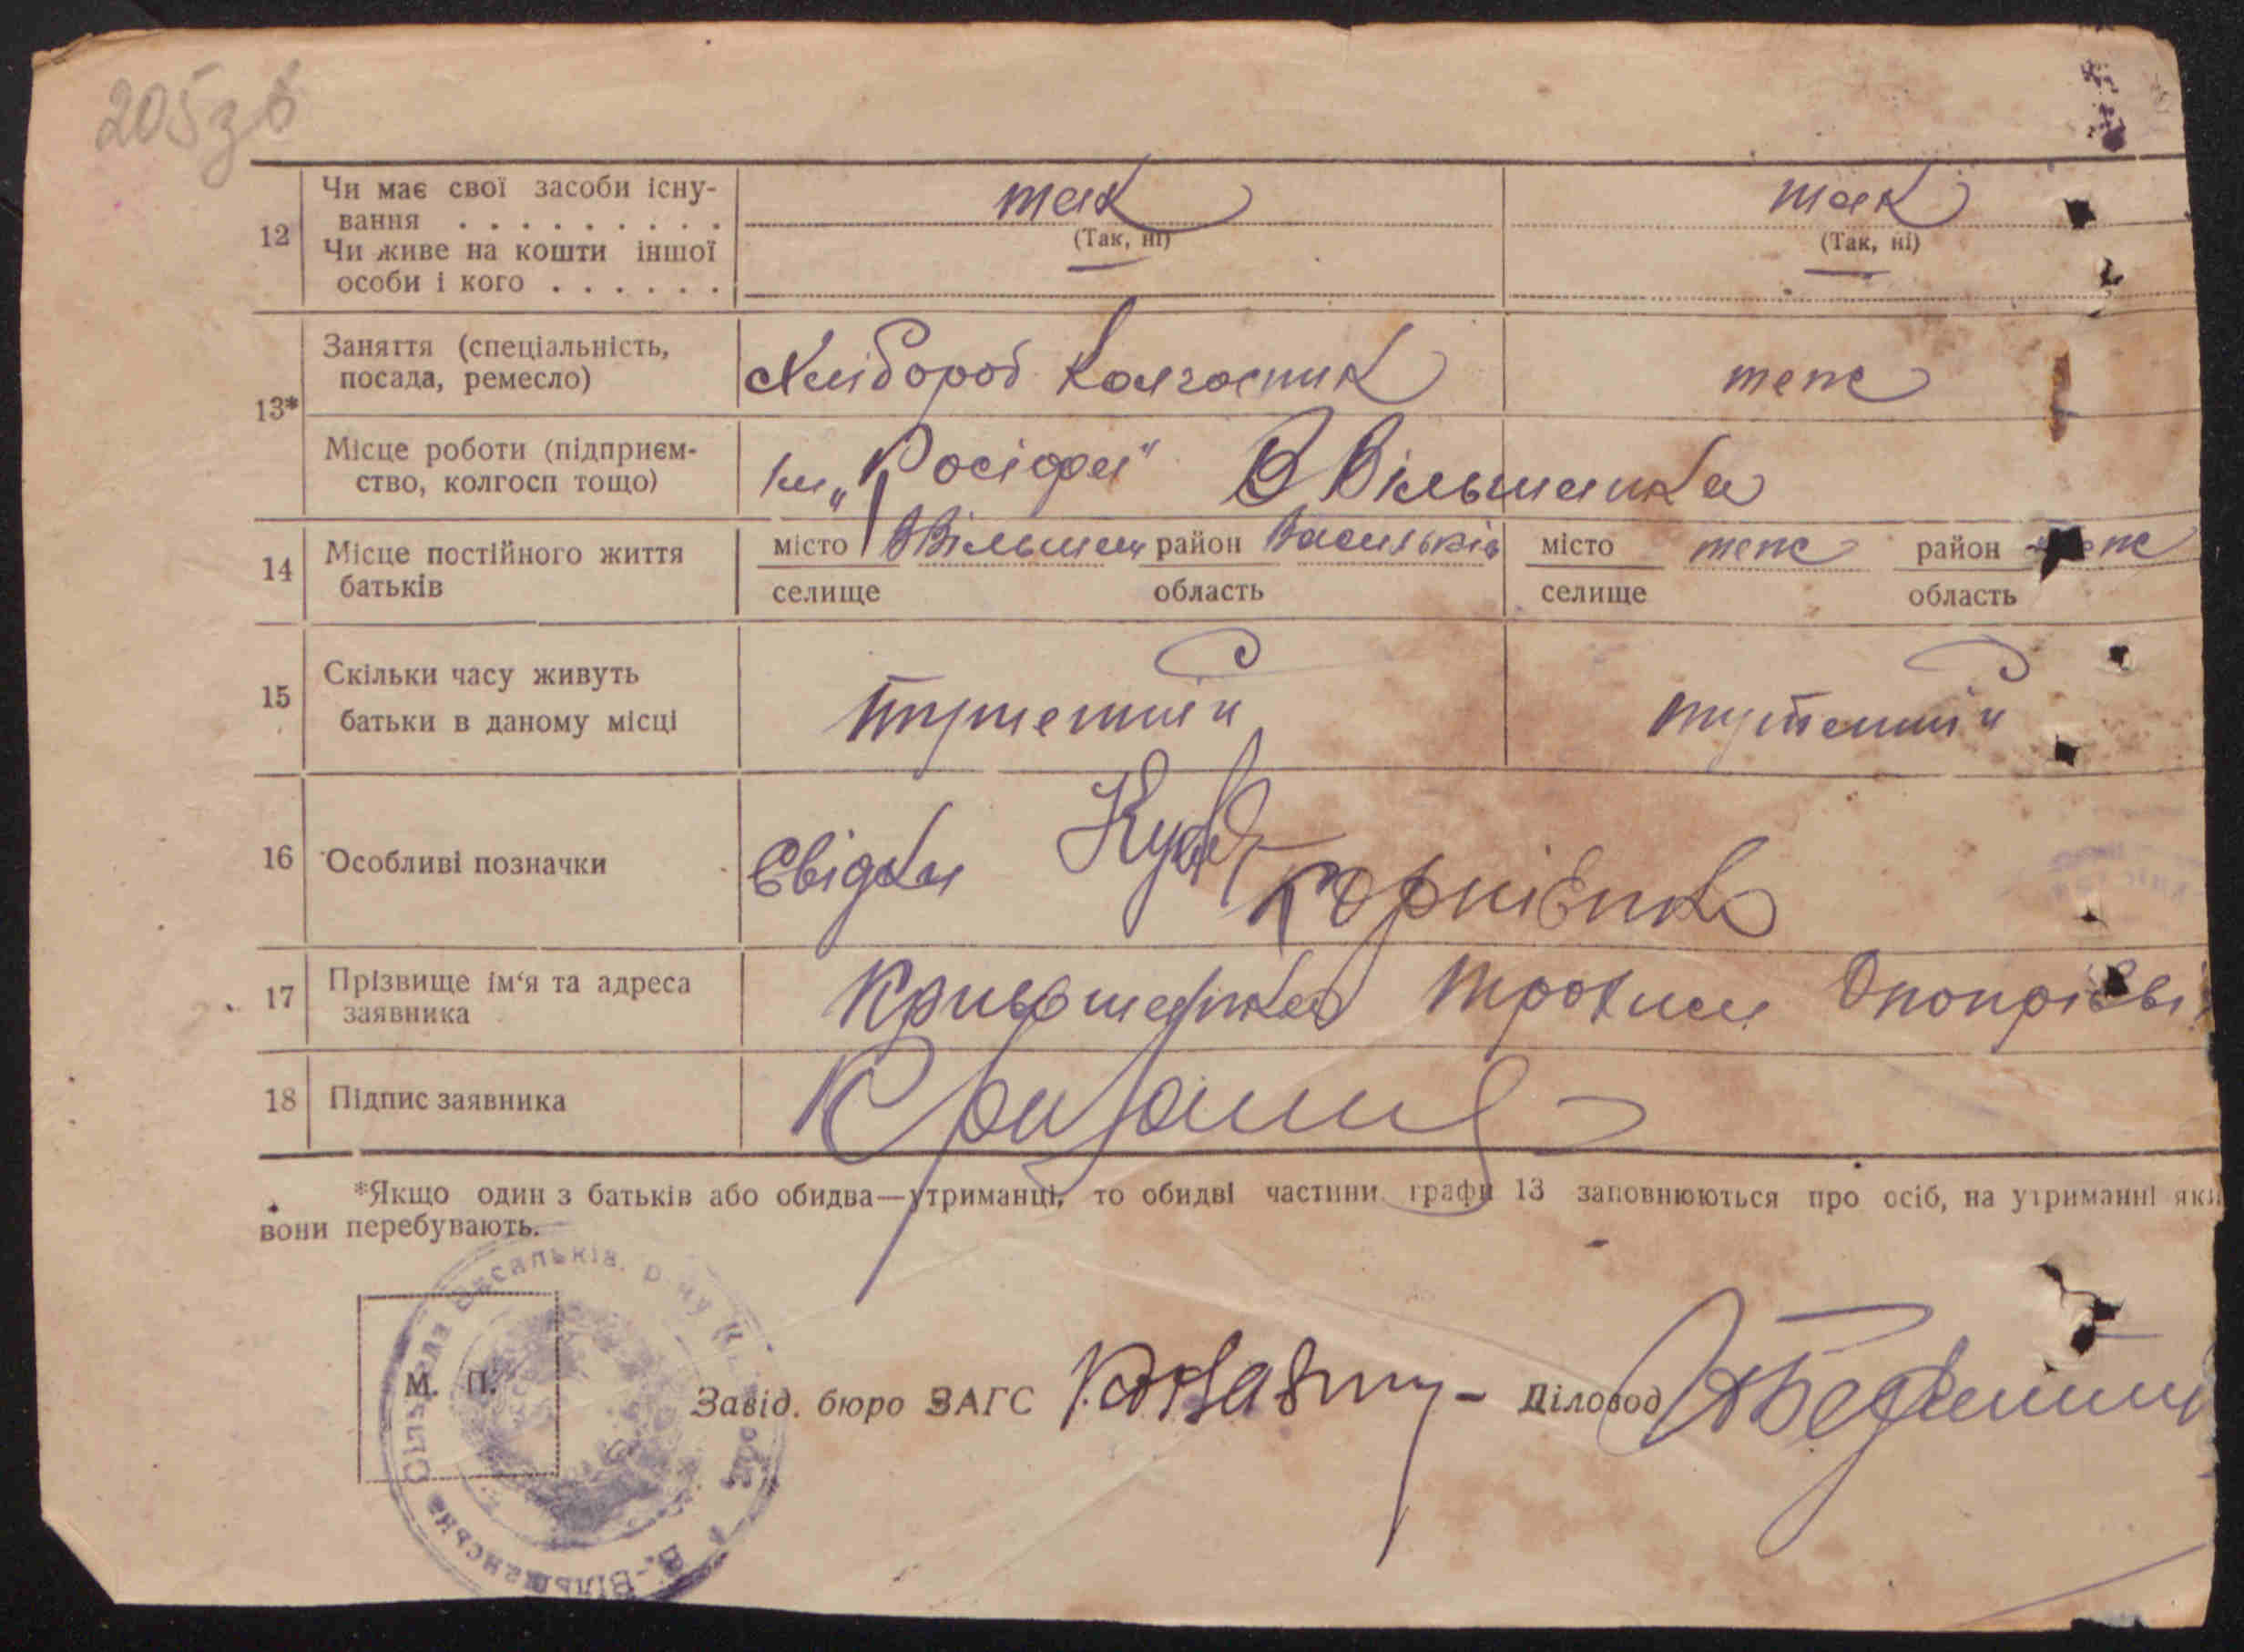 205зв
12 Чи має свої засоби існу- так так
вання . . . . . . . . . (Так, ні) (Так, ні)
Чи живе на кошти іншої
особи і кого . . . . . .
13* Заняття (спеціальність, Хлібороб колгоспник теж
посада, ремесло)
Місце роботи (підприєм- В Вільшанка
ство, колгосп тощо)
14 Місце постійного життя місто В Вільшан район Васильків місто теж район теж
батьків селище область селище область
15 Скільки часу живуть тутешній тутешній
батьки в даному місці
16 Особливі позначки Свідки Корнієнко
17 Прізвище ім‘я та адреса Трохим
заявника
18 Підпис заявника
*Якщо один з батьків або обидва—утриманці, то обидві частини графи 13 заповнюються про осіб, на утриманні яки
вони перебувають.
М. П.
Завід. бюро ЗАГС Діловод
В.-Вільшанська Сільрада Васильків. р-ну